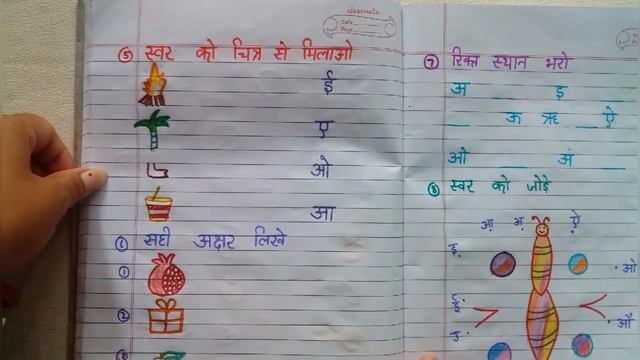 classmate
Date
Page
⑤ स्वर को चित्र से मिलाओ
ई
ए
ओ
आ
⑥ सही अक्षर लिखे
①
②
③
⑦ रिक्त स्थान भरो
अ _ इ _
_ ऊ ऋ _ ऐ
ओ _ अं
⑧ स्वर को जोड़े
आ अ ऐ
इ
ओ
ई
औ
उ